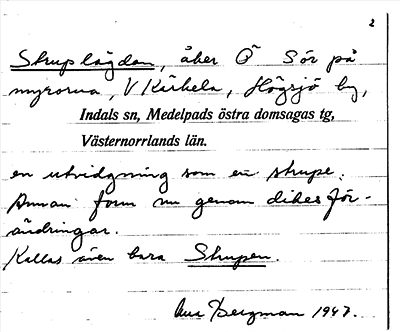 2
Struplägdan, åker Ö Sör på
myrorna, V Kärbela, Högsjö by,
Indals sn, Medelpads östra domsagas tg,
Västernorrlands län.
en utvidgning som en strupe.
Annan form nu genom dikesför-
ändringar.
Kallas även bara Strupen.
Bergman 1947.